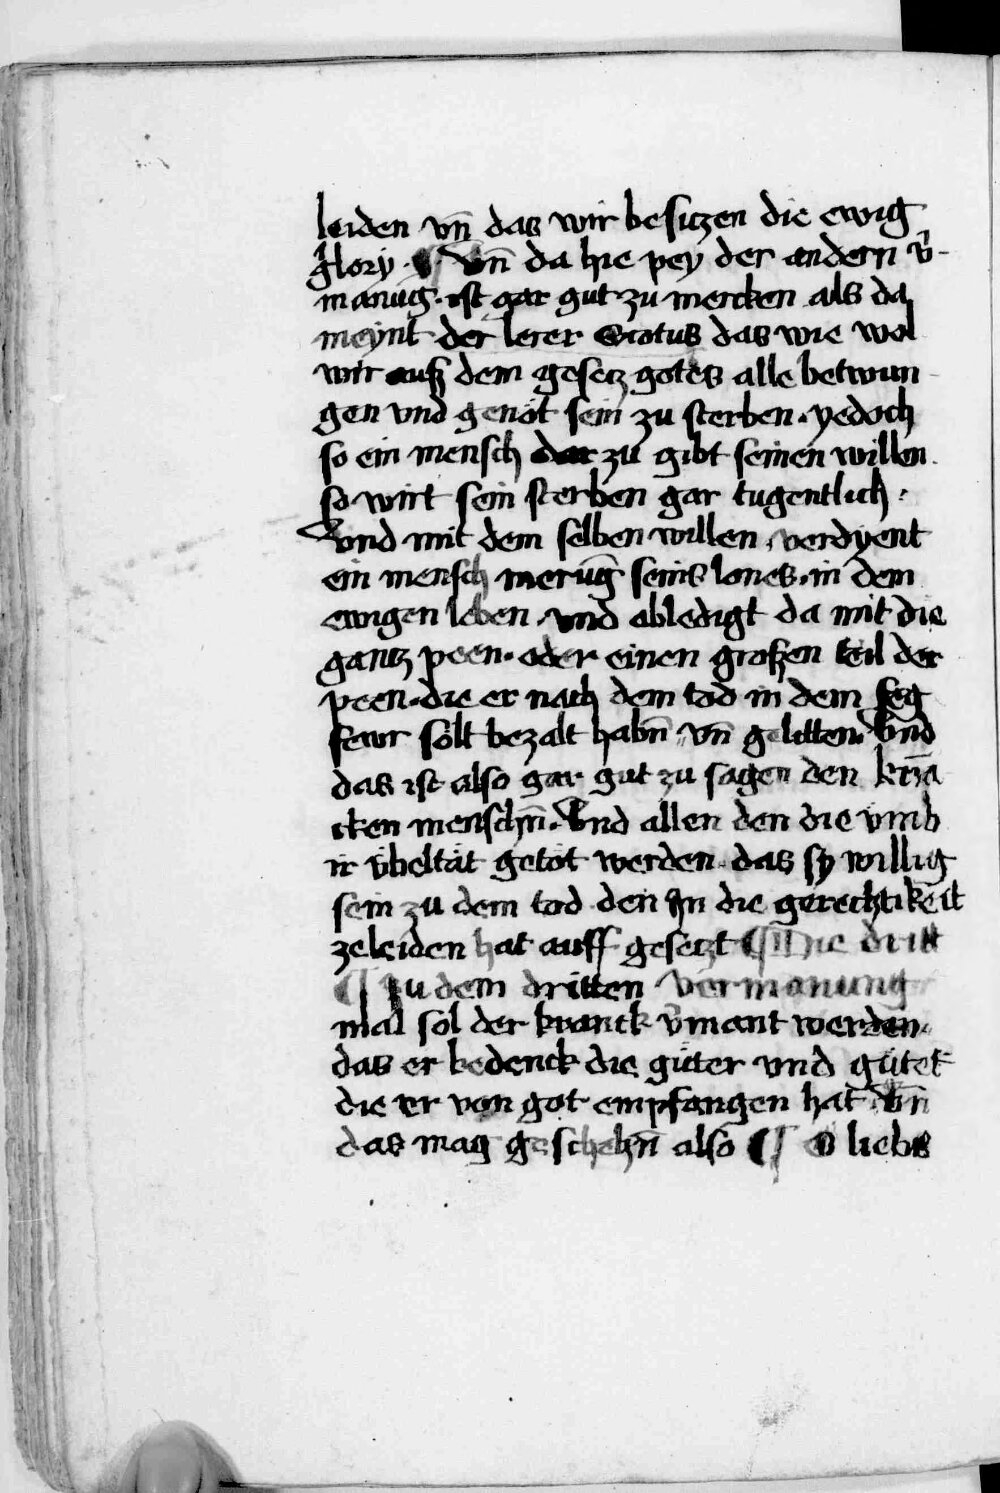 leiden vn̄ das wir besitzen die ewig
glory · ¶ Vn̄ da hie pey der andern v̄-
manūg · ist gar gut zu mercken als da
meynt der lerer Scotus das wie wol
wir auß dem gesetz gotes alle betwun-
gen vnd genöt sein zu sterben · yedoch
so ein mensch dar zu gibt seinen willen
so wirt sein sterben gar tugentlich ·
Vnd mit dem selben willen verdyent
ein mensch merūg seins lones · in dem
ewigen leben · vnd abledigt da mit die
gantz peen · oder einen großen teil der
peen · die er nach dem tod in dem feg
fewr solt bezalt habn̄ vn̄ gelitten · Vnd
das ist also gar gut zu sagen den krā
cken menschn̄ · Vnd allen den die vmb
ir v̈beltät getöt werden · das sy willig
sein zu dem tod den In die gerechtikeit
zeleiden hat auff gesetzt ¶ Die dritt
¶ Zu dem dritten vermanung
mal sol der kranck v̄mant werden ·
das er bedenck die güter vnd gütet
die er von got empfangen hat Vn̄
das mag geschehn̄ also ¶ O liebs